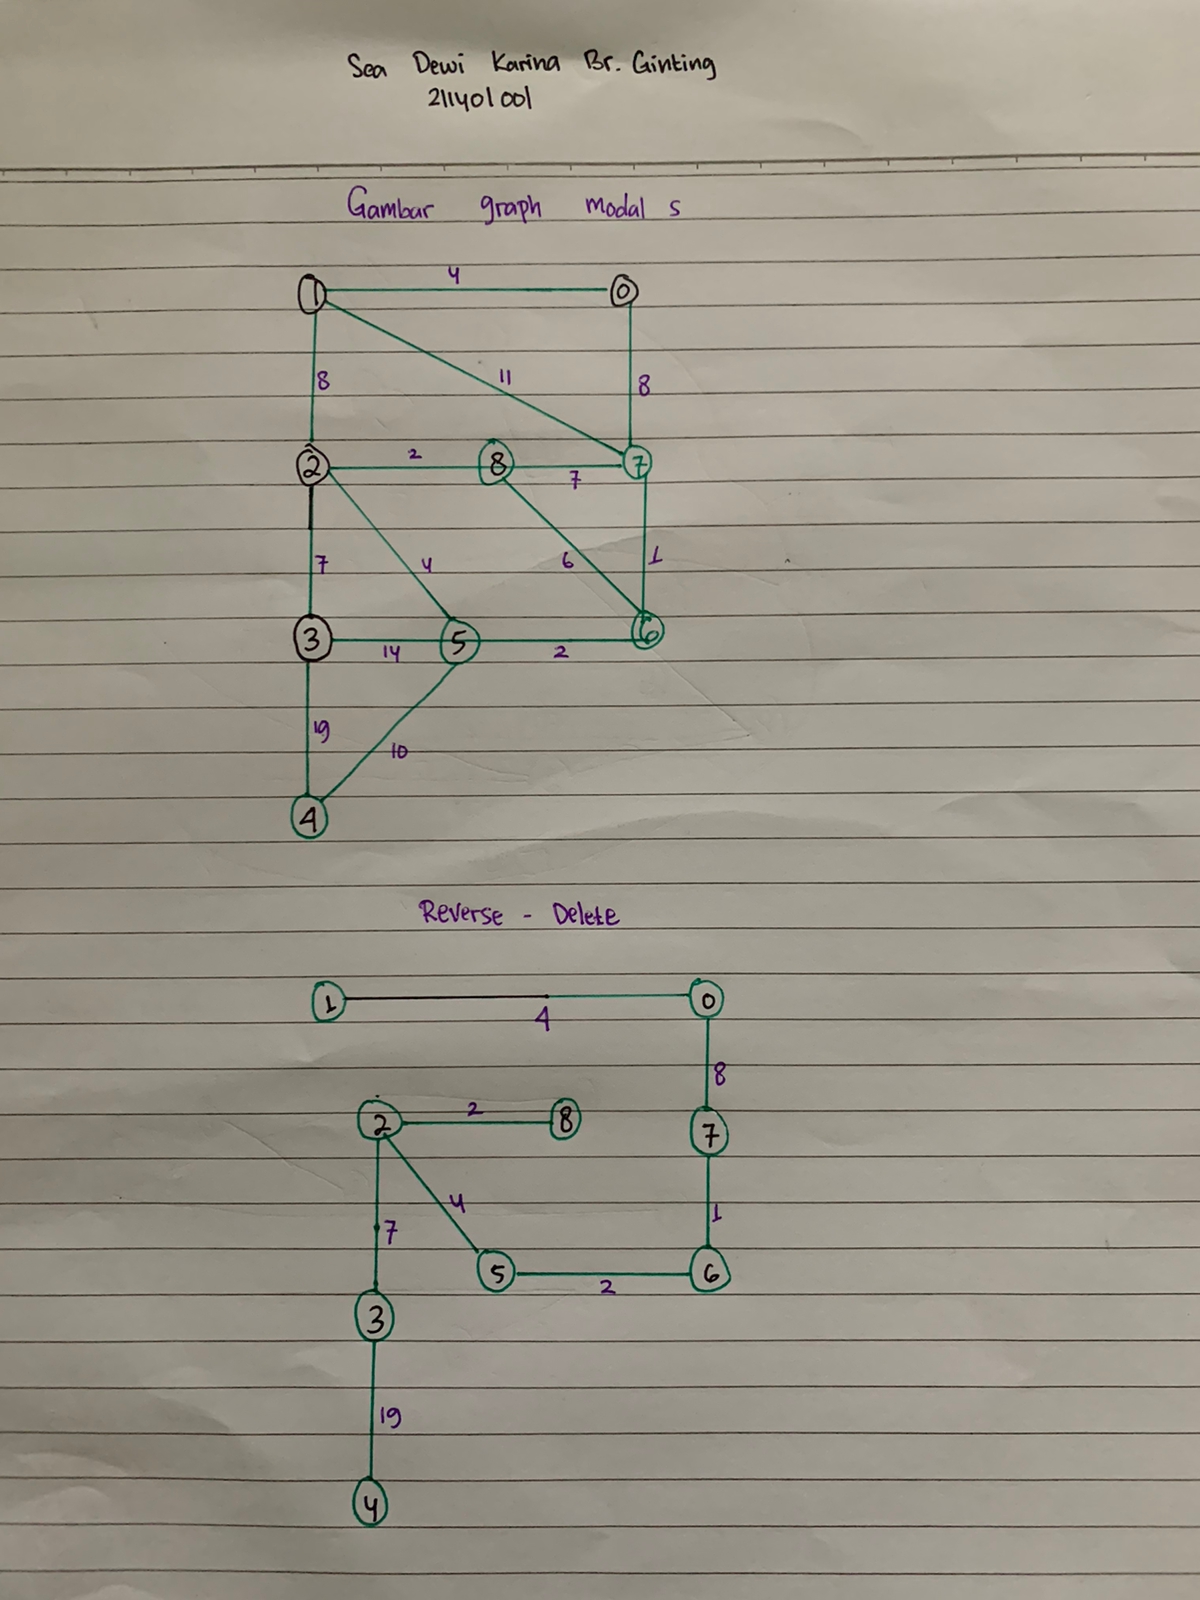 Sea Dewi Karina Br. Ginting
211401001
Gambar graph modal s
1 4 0
8 11 8
2 2 8 7 7
7 4 6 1
3 14 5 2 6
19 10
4
Reverse - Delete
1 4 0
8
2 2 8 7
4 1
7
5 2 6
3
19
4